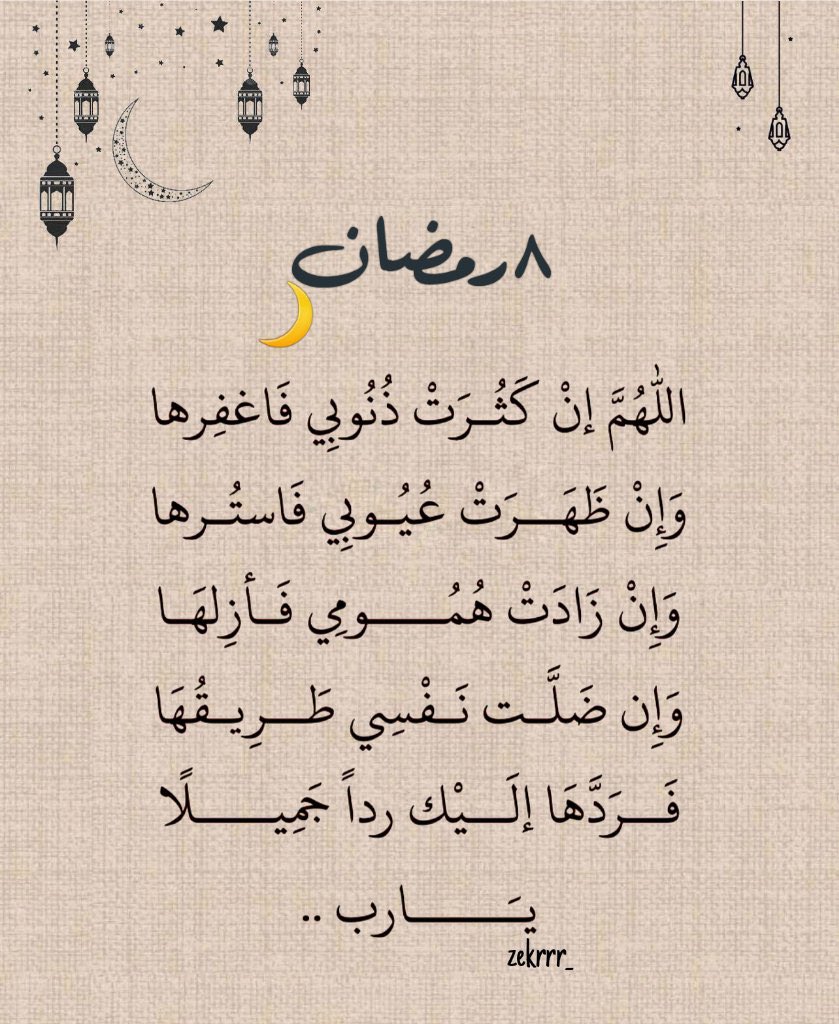 ٨رمضان
اللّٰهُمَّ إنْ كَثُـرَتْ ذُنُوبِي فَاغفِرها
وَإِنْ ظَهَـــرَتْ عُيُـوبِي فَاستُـرها
وَإِنْ زَادَتْ هُمُــــــومِي فَـأزِلهَـا
وَإِن ضَلَّـت نَـفْسِي طَـــرِيـقُهَا
فَـــرَدَّهَا إلَـــيْك رداً جَمِيــــــلًا
يَـــــــــارب ..
zekrrr_